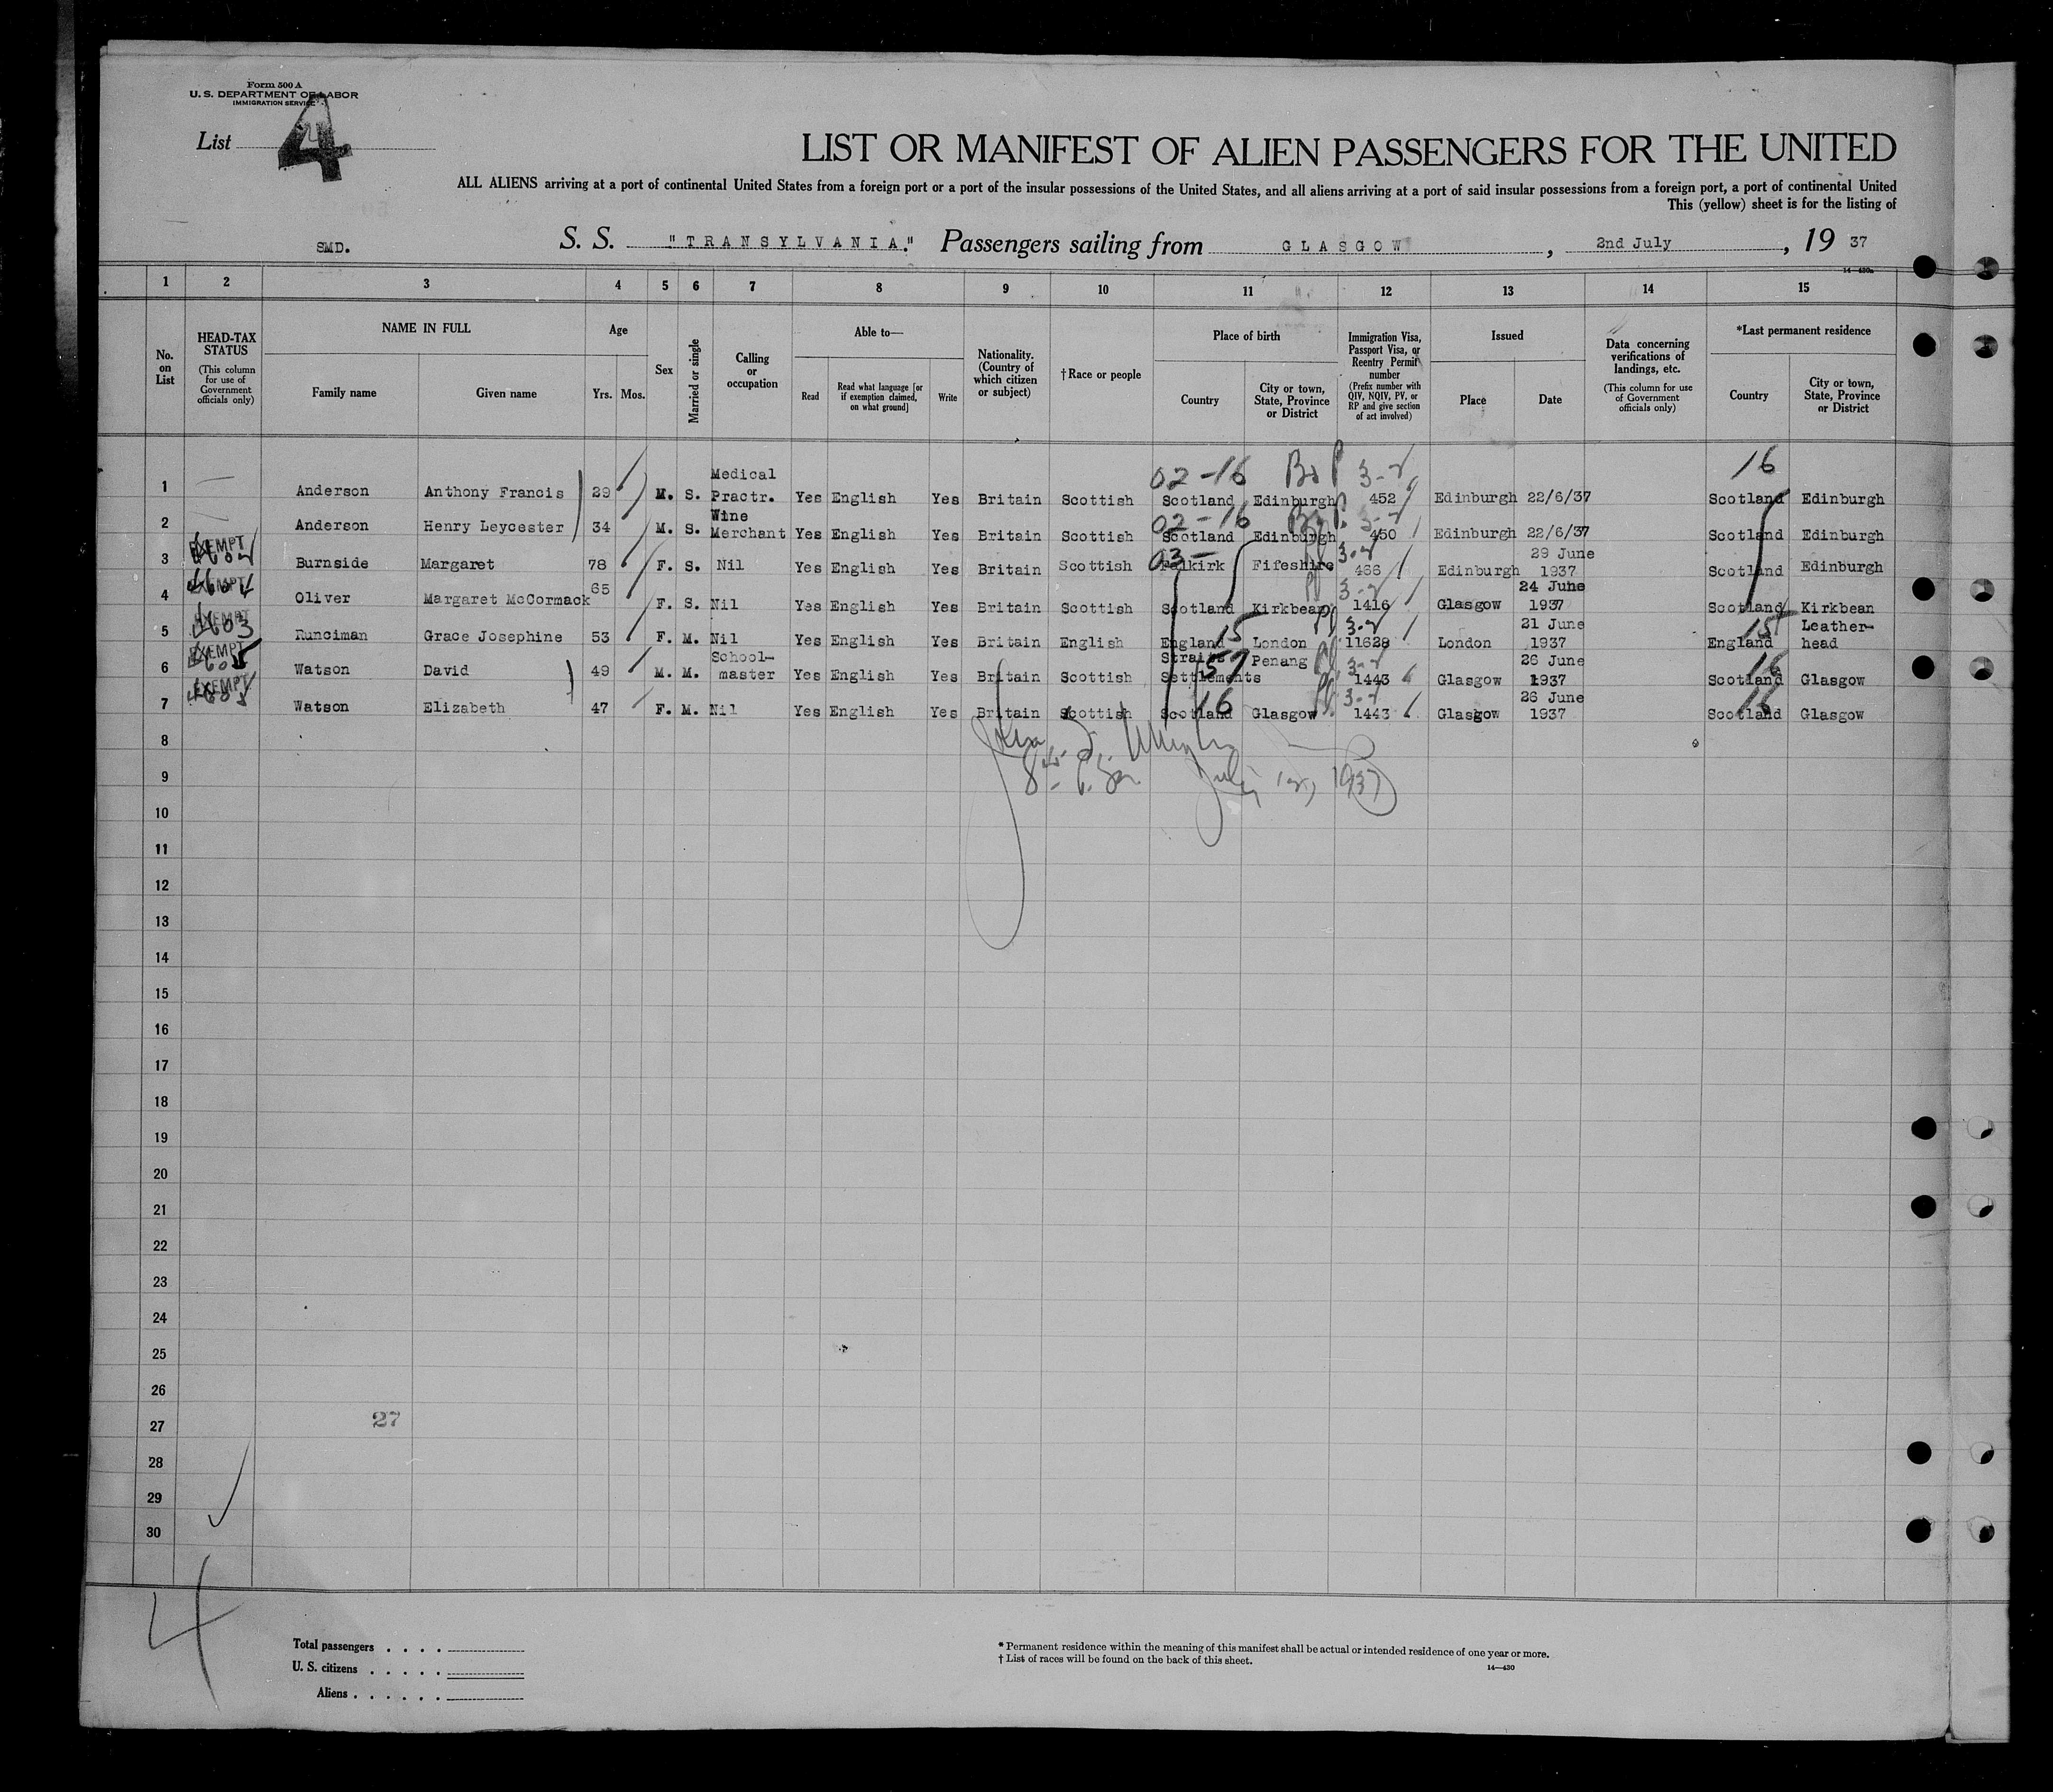 Form 500 A
U. S. DEPARTMENT OF LABOR
IMMIGRATION SERVICE
List 4
LIST OR MANIFEST OF ALIEN PASSENGERS FOR THE UNITED
ALL ALIENS arriving at a port of continental United States from a foreign port or a port of the insular possessions of the United States, and all aliens arriving at a port of said insular possessions from a foreign port, a port of continental United
This (yellow) sheet is for the listing of
SMD. S. S. "TRANSYLVANIA." Passengers sailing from GLASGOW, 2nd July, 19 37
1 2 3 4 5 6 7 8 9 10 11 12 13 14 15
No. on List
HEAD-TAX STATUS (This column for use of Government officials only)
NAME IN FULL Family name Given name
Age Yrs. Mos.
Sex
Married or single
Calling or occupation
Able to— Read Read what language [or if exemption claimed, on what ground] Write
Nationality. (Country of which citizen or subject)
†Race or people
Place of birth Country City or town, State, Province or District
Immigration Visa, Passport Visa, or Reentry Permit number (Prefix number with QIV, NQIV, PV, or RP and give section of act involved)
Issued Place Date
Data concerning verifications of landings, etc. (This column for use of Government officials only)
*Last permanent residence Country City or town, State, Province or District
02-16 3-2 16
1 Anderson Anthony Francis 29 M. S. Medical Practr. Yes English Yes Britain Scottish Scotland Edinburgh 452 Edinburgh 22/6/37 Scotland Edinburgh
02-16 3-2
2 Anderson Henry Leycester 34 M. S. Wine Merchant Yes English Yes Britain Scottish Scotland Edinburgh 450 Edinburgh 22/6/37 Scotland Edinburgh
03- 3-2
3 EXEMPT Burnside Margaret 78 F. S. Nil Yes English Yes Britain Scottish Falkirk Fifeshire 466 Edinburgh 29 June 1937 Scotland Edinburgh
3-2
4 EXEMPT Oliver Margaret McCormack 65 F. S. Nil Yes English Yes Britain Scottish Scotland Kirkbean 1416 Glasgow 24 June 1937 Scotland Kirkbean
15 3-2 15
5 EXEMPT 603 Runciman Grace Josephine 53 F. M. Nil Yes English Yes Britain English England London 11628 London 21 June 1937 England Leather-head
57 3-2 16
6 EXEMPT 605 Watson David 49 M. M. School-master Yes English Yes Britain Scottish Straits Settlements Penang 1443 Glasgow 26 June 1937 Scotland Glasgow
16 3-2 16
7 EXEMPT 605 Watson Elizabeth 47 F. M. Nil Yes English Yes Britain Scottish Scotland Glasgow 1443 Glasgow 26 June 1937 Scotland Glasgow
8
July 12, 1937
9
10
11
12
13
14
15
16
17
18
19
20
21
22
23
24
25
26
27 27
28
29
30
4
Total passengers . . . .
U. S. citizens . . . . .
Aliens . . . . . .
* Permanent residence within the meaning of this manifest shall be actual or intended residence of one year or more.
† List of races will be found on the back of this sheet.
14—430